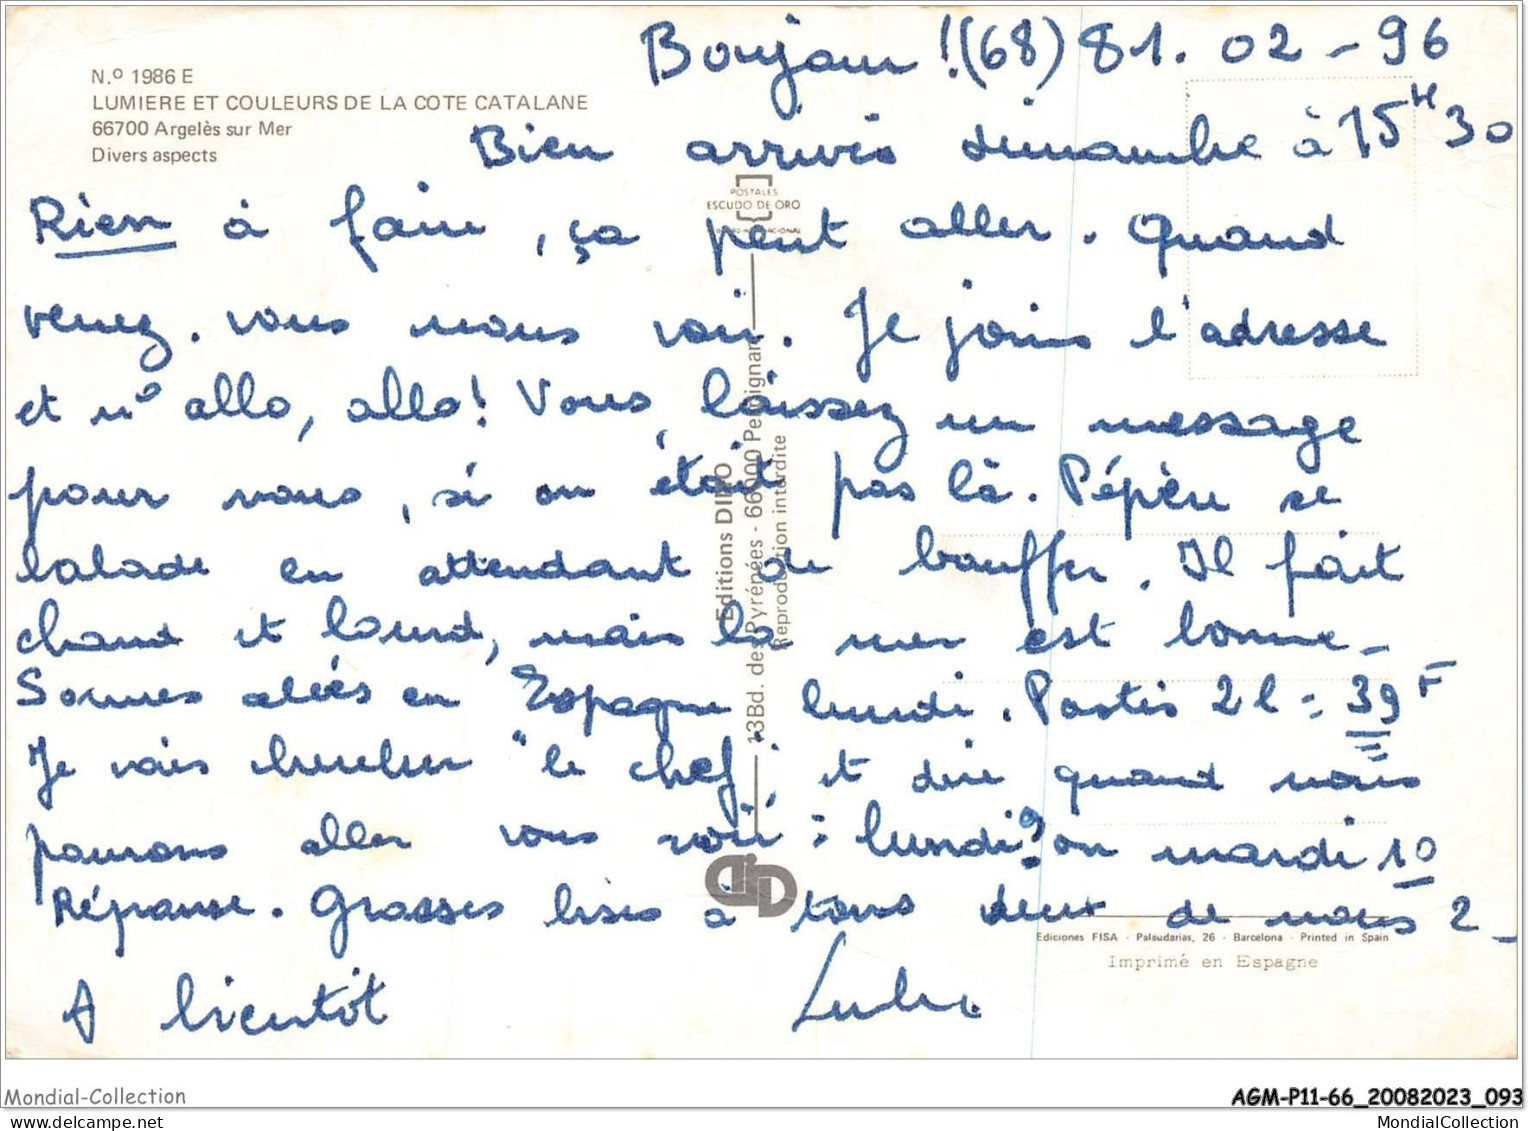 Bonjour !(68) 81. 02 - 96
N.º 1986 E
LUMIERE ET COULEURS DE LA COTE CATALANE
66700 Argelès sur Mer
Divers aspects
Bien arrivés dimanche à 15 H 30
POSTALES
ESCUDO DE ORO
Rien à faire, ça peut aller. Quand
venez. vous nous voir. Je joins l'adresse
et n° allo, allo! Vous laissez un message
pour nous, si on était pas là. Pépère se
balade en attendant de bouffer. Il fait
chaud et lourd, mais la mer est bonne_
Sommes allés en Espagne lundi. Pastis 2 l = 39 F
Je vais chercher "le chef" et dire quand nous
pourrons aller vous voir : lundi 9 ou mardi 10
Réponse. Grosses bises à tous deux de nous 2_
A bientôt
Editions DINO
13Bd. des Pyrénées - 66000 Perpignan
Reproduction interdite
Ediciones FISA - Palaudarias, 26 - Barcelona - Printed in Spain
Imprimé en Espagne
Mondial-Collection
AGM-P11-66_20082023_093
MondialCollection